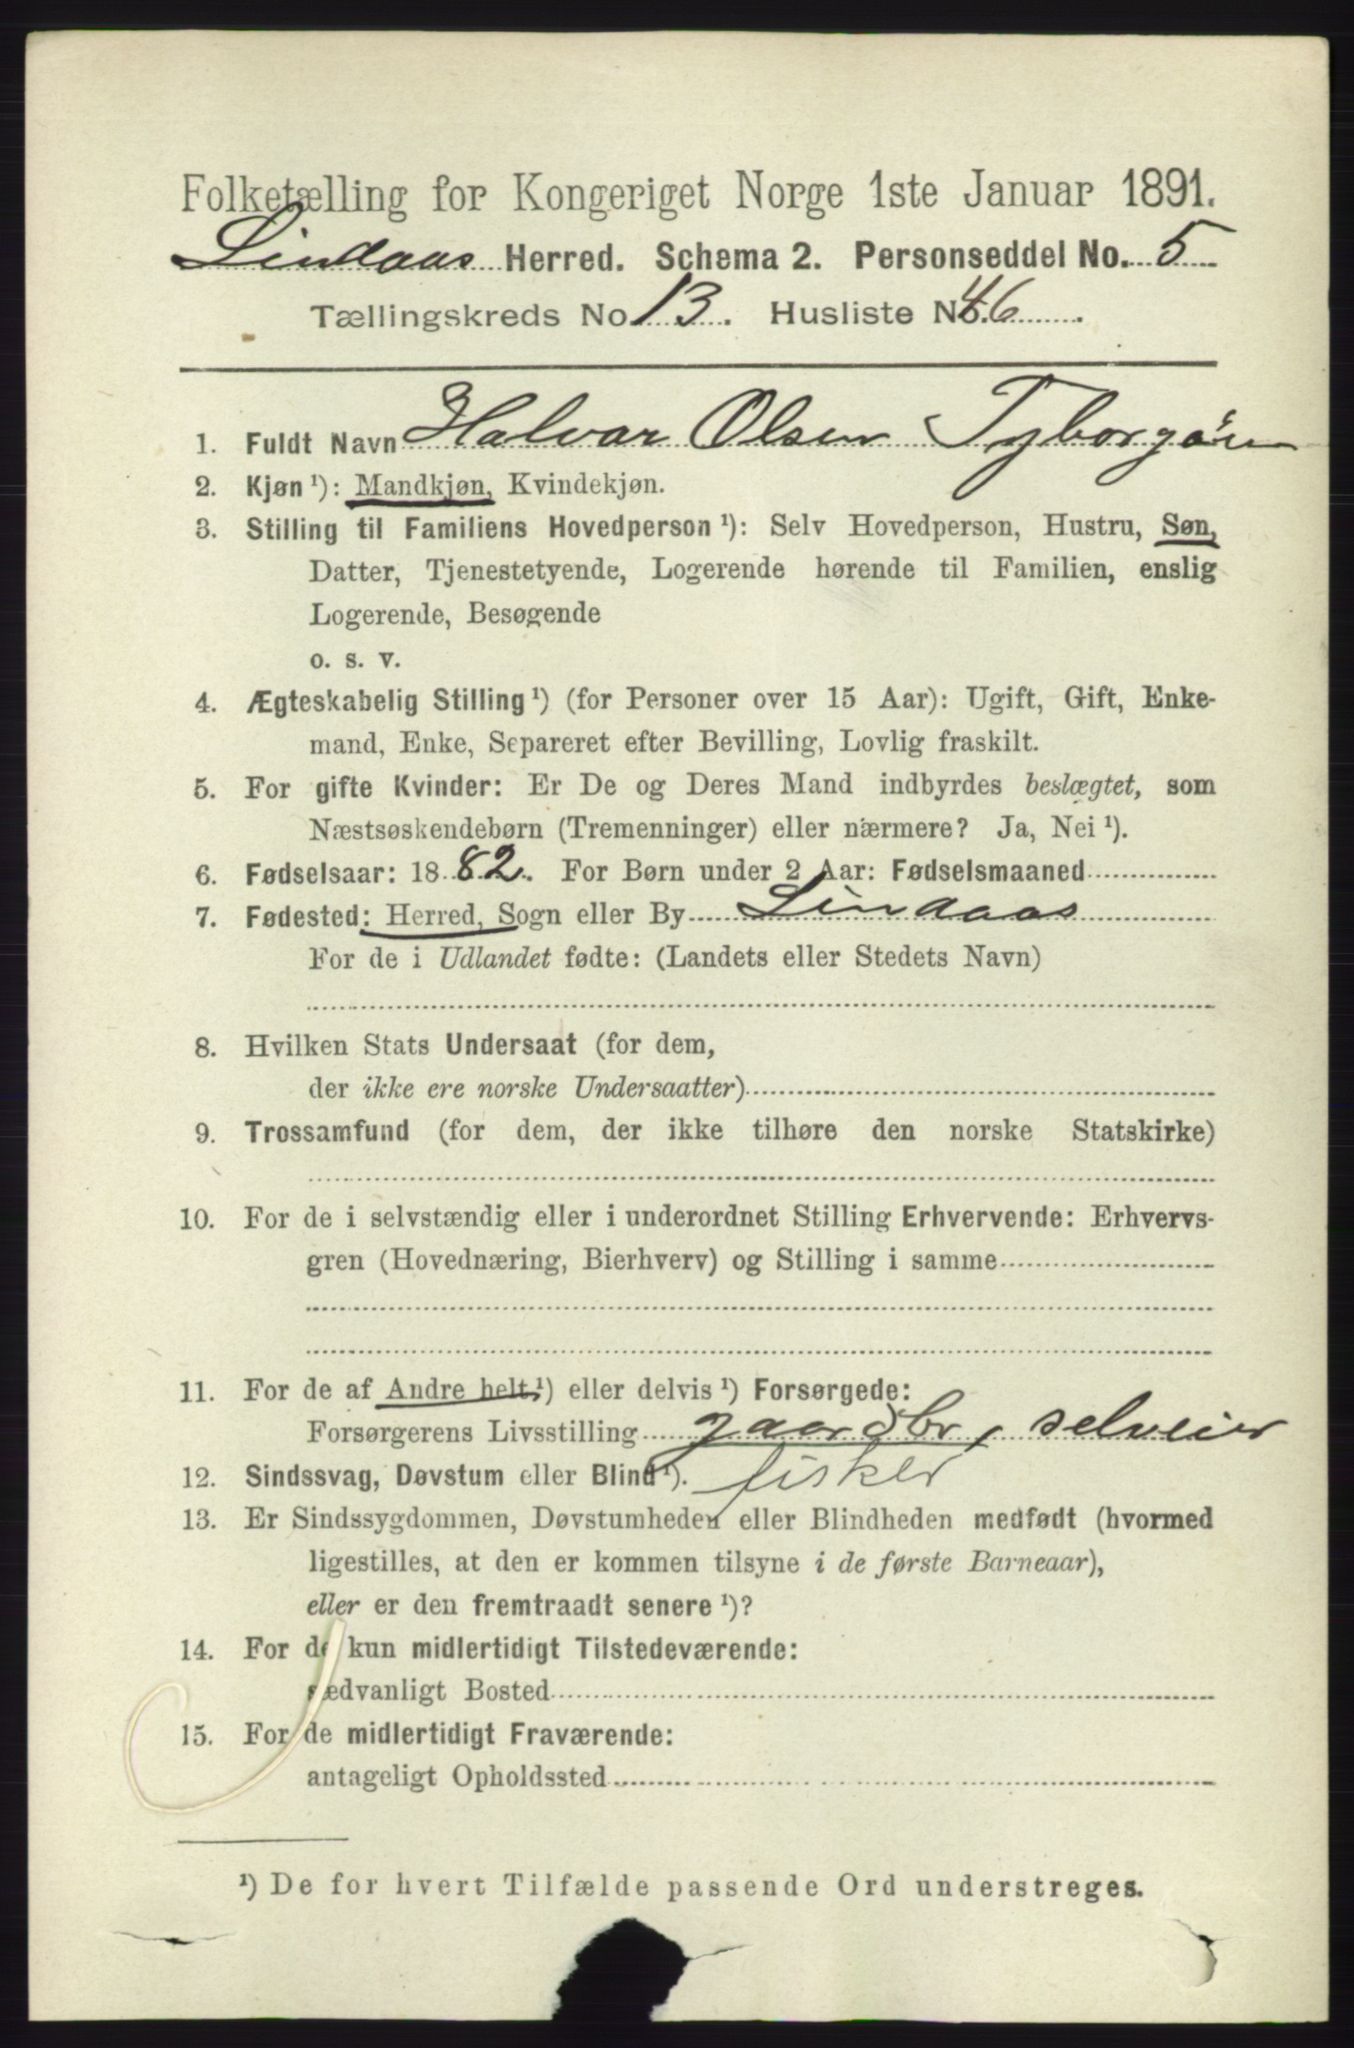 Folketælling for Kongeriget Norge 1ste Januar 1891.
Lindaas Herred. Schema 2. Personseddel No. 5
Tællingskreds No. 13. Husliste No. 46.
1. Fuldt Navn Halvar Olsen
2. Kjøn ¹): Mandkjøn, Kvindekjøn.
3. Stilling til Familiens Hovedperson ¹): Selv Hovedperson, Hustru, Søn,
Datter, Tjenestetyende, Logerende hørende til Familien, enslig
Logerende, Besøgende
o. s. v.
4. Ægteskabelig Stilling ¹) (for Personer over 15 Aar): Ugift, Gift, Enke-
mand, Enke, Separeret efter Bevilling, Lovlig fraskilt.
5. For gifte Kvinder: Er De og Deres Mand indbyrdes beslægtet, som
Næstsøskendebørn (Tremenninger) eller nærmere? Ja, Nei ¹).
6. Fødselsaar: 1882. For Børn under 2 Aar: Fødselsmaaned
7. Fødested: Herred, Sogn eller By Lindaas
For de i Udlandet fødte: (Landets eller Stedets Navn)
8. Hvilken Stats Undersaat (for dem,
der ikke ere norske Undersaatter)
9. Trossamfund (for dem, der ikke tilhøre den norske Statskirke)
10. For de i selvstændig eller i underordnet Stilling Erhvervende: Erhvervs-
gren (Hovednæring, Bierhverv) og Stilling i samme
11. For de af Andre helt ¹) eller delvis ¹) Forsørgede:
Forsørgerens Livsstilling gaardbr, selveier
12. Sindssvag, Døvstum eller Blind ¹). fisker
13. Er Sindssygdommen, Døvstumheden eller Blindheden medfødt (hvormed
ligestilles, at den er kommen tilsyne i de første Barneaar),
eller er den fremtraadt senere ¹)?
14. For de kun midlertidigt Tilstedeværende:
sædvanligt Bosted
15. For de midlertidigt Fraværende:
antageligt Opholdssted
¹) De for hvert Tilfælde passende Ord understreges.